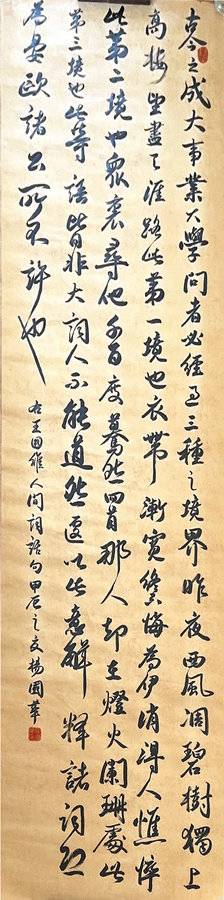 古今之成大事業大學問者必經過三種之境界昨夜西風凋碧樹獨上
高樓望盡天涯路此第一境也衣帶漸寬終不悔為伊消得人憔悴
此第二境也眾裏尋他千百度驀然回首那人却在燈火闌珊處此
第三境也此等語皆非大詞人不能道然遽以此意解釋諸詞恐
為晏歐諸公所不許也
右王國維人間詞話句甲辰之夏楊國華